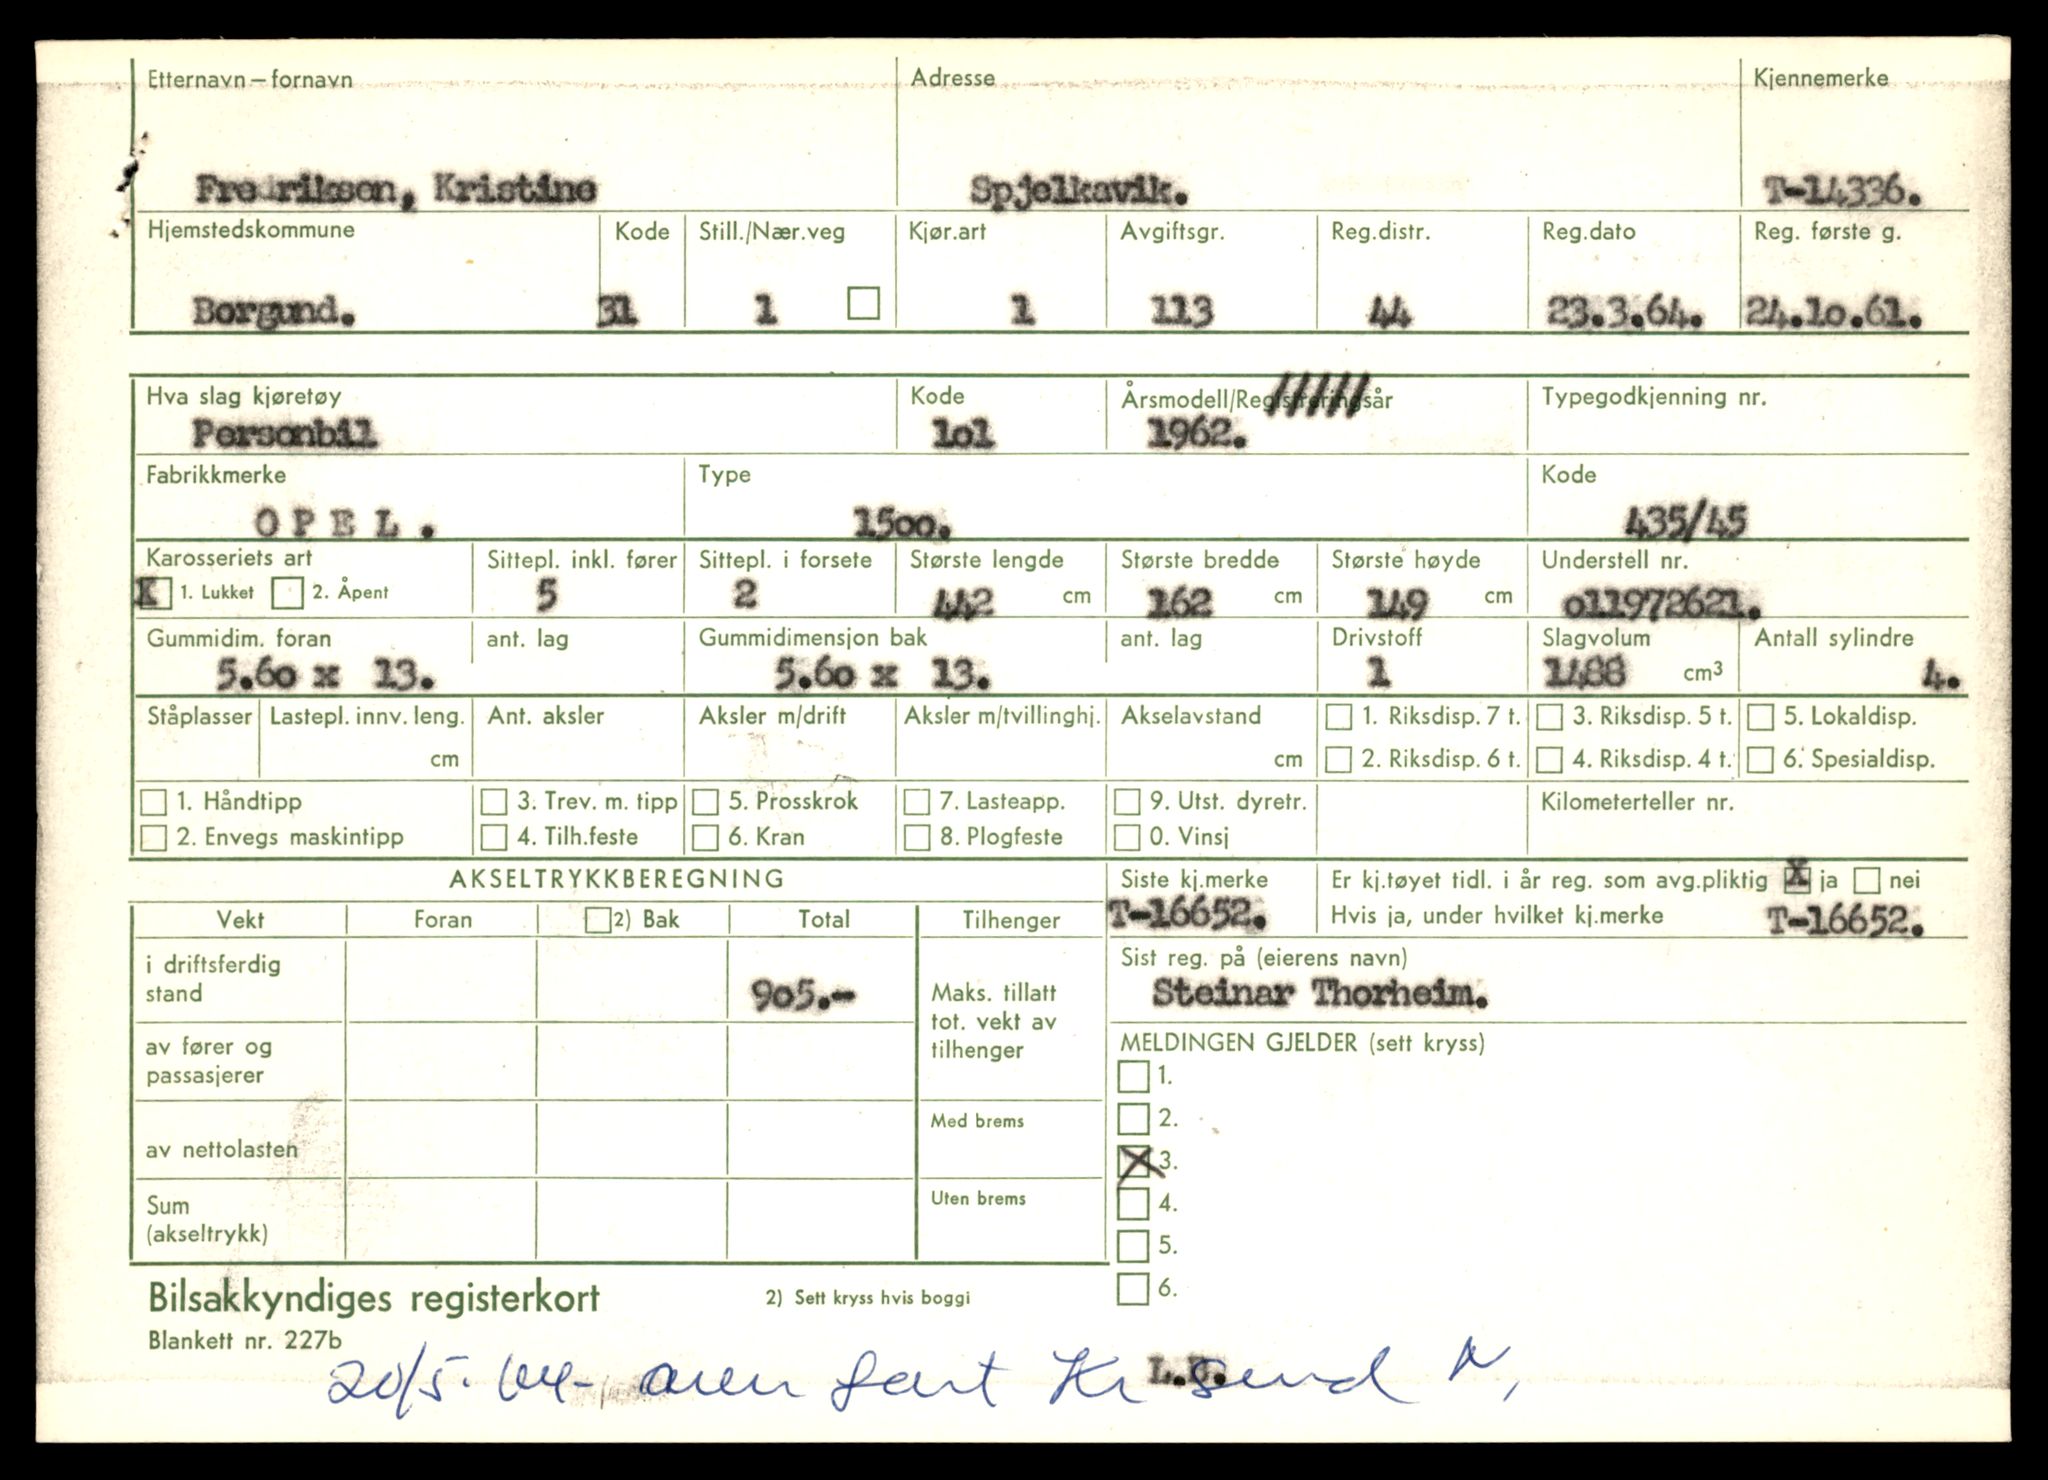 Etternavn – fornavn Adresse Kjennemerke
Fredriksen, Kristine Spjelkavik. T-14336.
Hjemstedskommune Kode Still./Nær.veg Kjør.art Avgiftsgr. Reg.distr. Reg.dato Reg. første g.
Borgund. 31 1 1 113 44 23.3.64. 24.1o.61.
Hva slag kjøretøy Kode Årsmodell/Registreringsår Typegodkjenning nr.
Personbil 1o1 1962.
Fabrikkmerke Type Kode
O P E L . 15oo. 435/45
Karosseriets art Sittepl. inkl. fører Sittepl. i forsete Største lengde Største bredde Største høyde Understell nr.
X 1. Lukket 2. Åpent 5 2 442 cm 162 cm 149 cm o11972621.
Gummidim. foran ant. lag Gummidimensjon bak ant. lag Drivstoff Slagvolum Antall sylindre
5.6o x 13. 5.6o x 13. 1 1488 cm³ 4.
Ståplasser Lastepl. innv. leng. Ant. aksler Aksler m/drift Aksler m/tvillinghj. Akselavstand 1. Riksdisp. 7 t. 3. Riksdisp. 5 t. 5. Lokaldisp.
cm cm 2. Riksdisp. 6 t. 4. Riksdisp. 4 t. 6. Spesialdisp.
1. Håndtipp 3. Trev. m. tipp 5. Prosskrok 7. Lasteapp. 9. Utst. dyretr. Kilometerteller nr.
2. Envegs maskintipp 4. Tilh.feste 6. Kran 8. Plogfeste 0. Vinsj
AKSELTRYKKBEREGNING Siste kj.merke Er kj.tøyet tidl. i år reg. som avg.pliktig X ja nei
T-16652. Hvis ja, under hvilket kj.merke T-16652.
Vekt Foran 2) Bak Total Tilhenger
Sist reg. på (eierens navn)
Steinar Thorheim.
i driftsferdig
stand 9o5.- Maks. tillatt
tot. vekt av
tilhenger
av fører og
passasjerer
MELDINGEN GJELDER (sett kryss)
1.
2.
X 3.
4.
5.
6.
Med brems
av nettolasten
Uten brems
Sum
(akseltrykk)
Bilsakkyndiges registerkort 2) Sett kryss hvis boggi
Blankett nr. 227b
20/5. 64- Kr sund N,